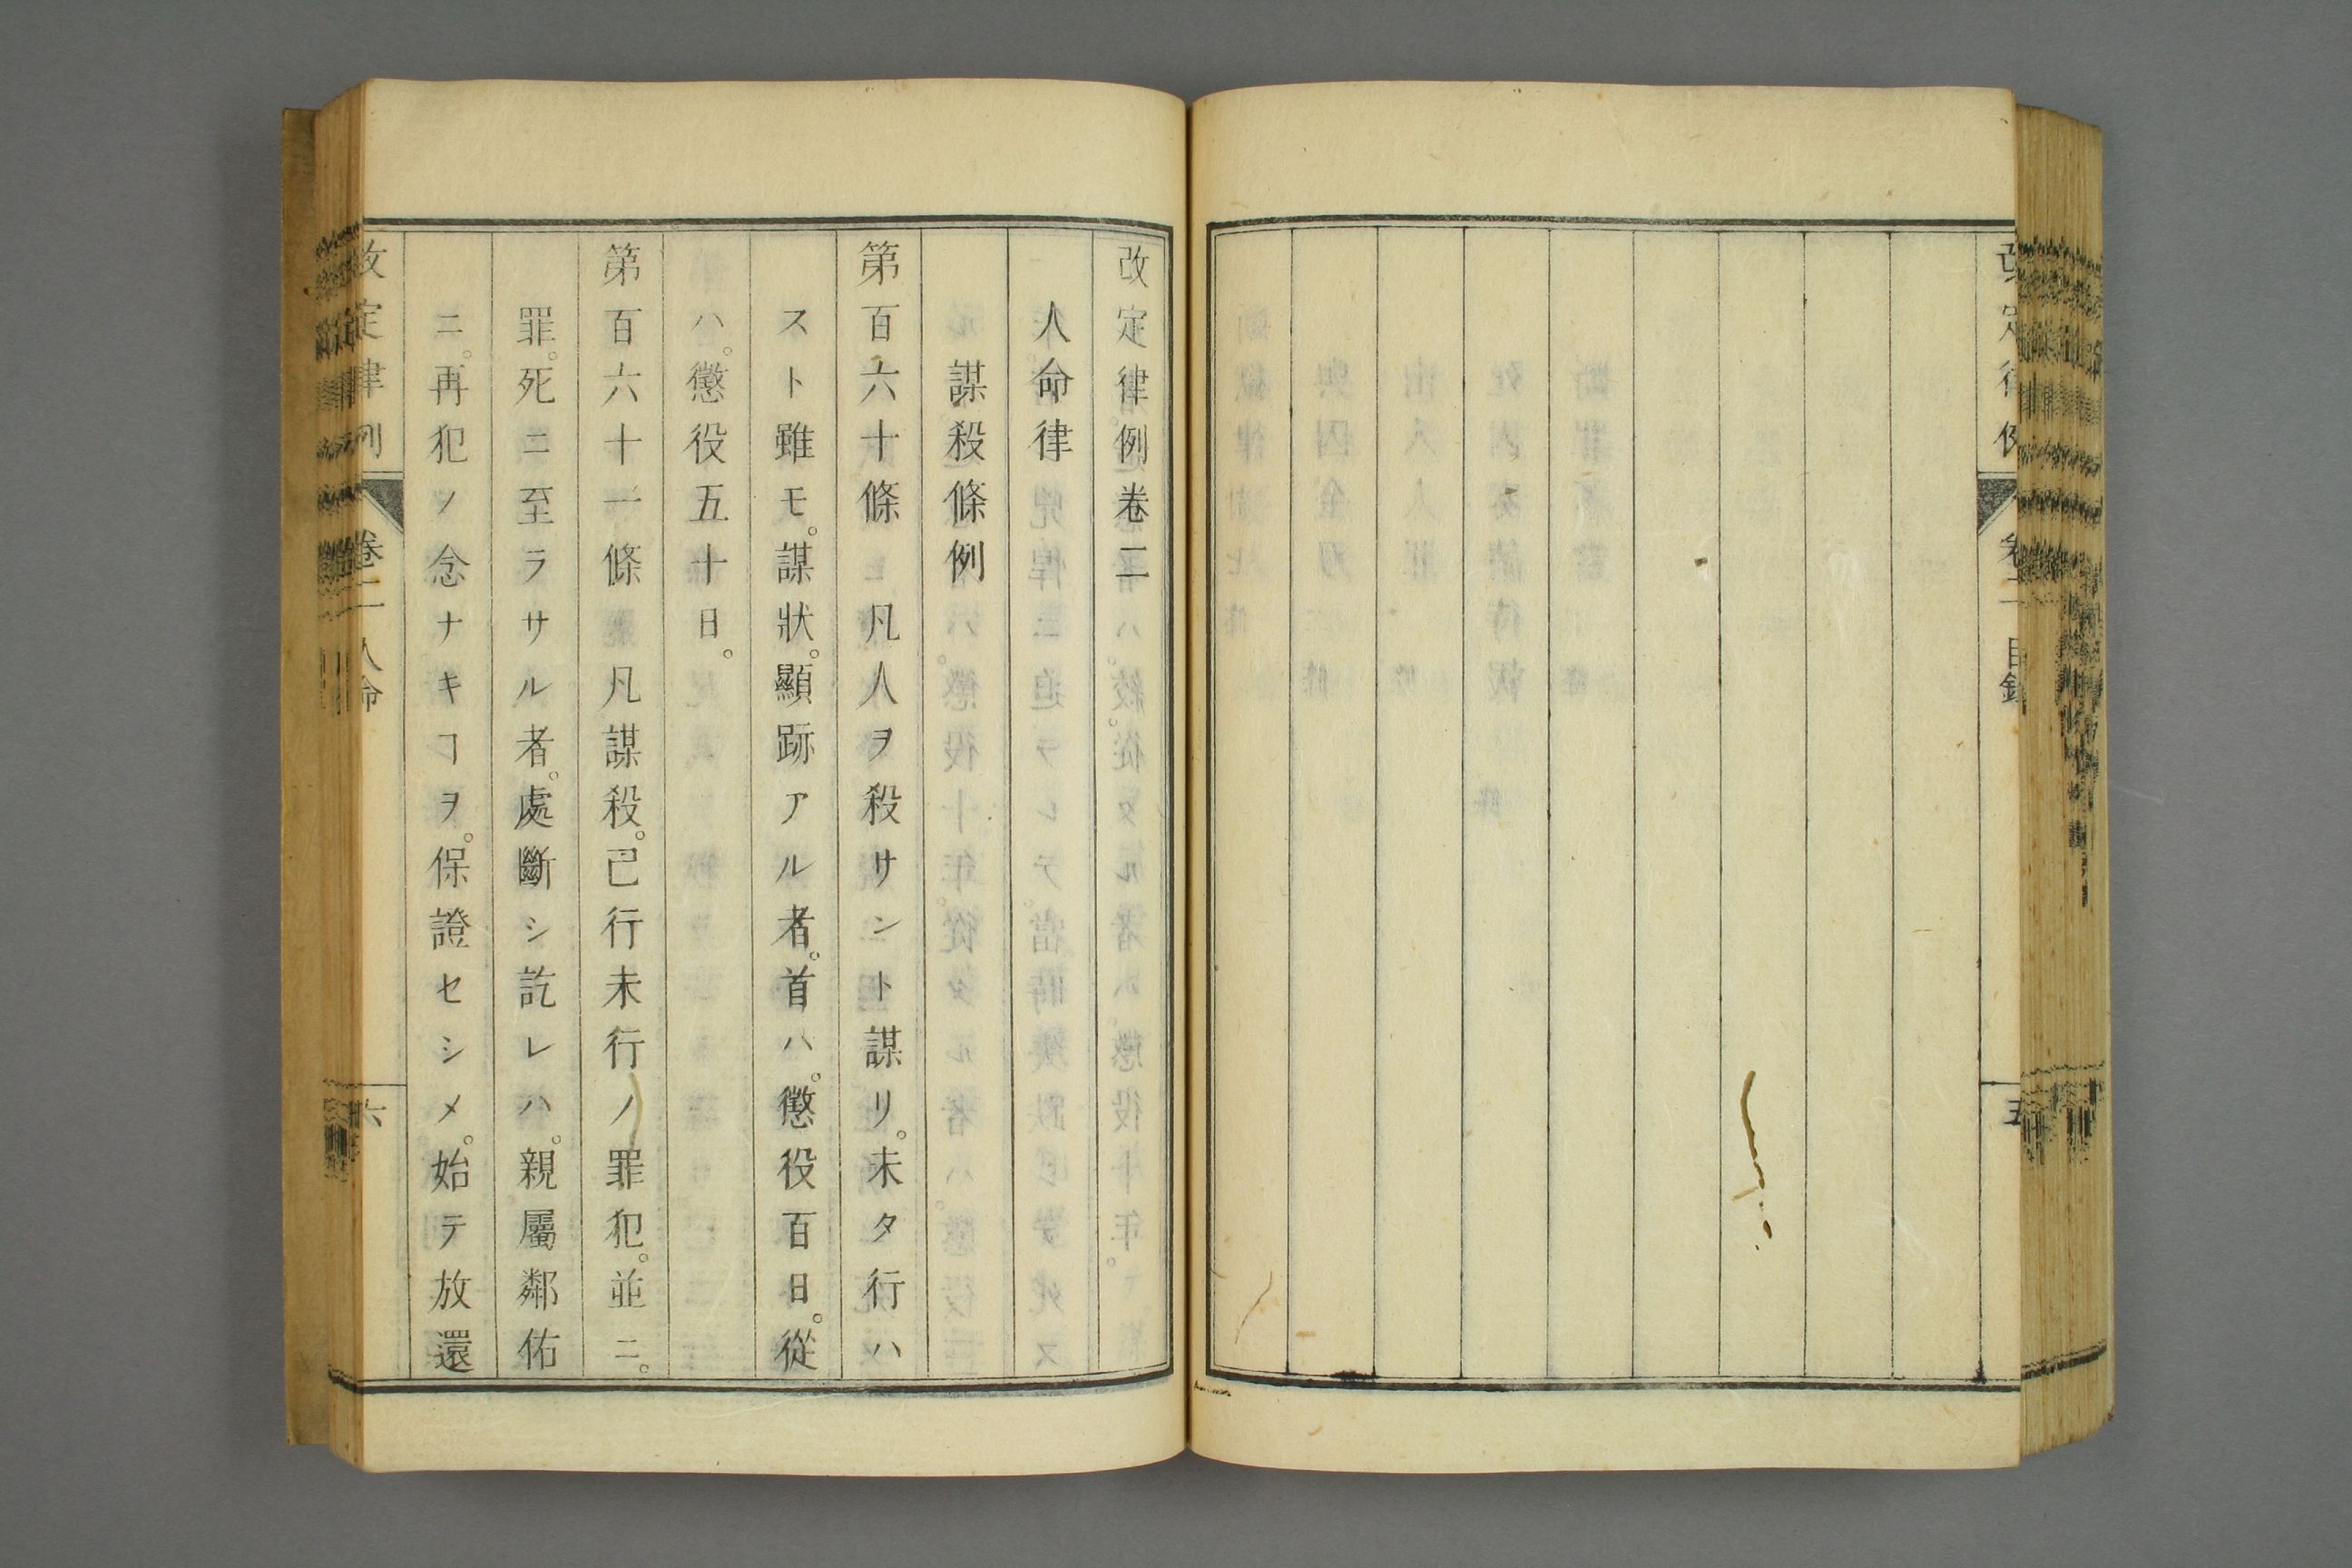 改定律例
卷二目錄
五
改定律例卷二
人命律
謀殺條例
第百六十條　凡人ヲ殺サント謀リ。未タ行ハ
スト雖モ。謀狀。顯跡アル者。首ハ。懲役百日。從
ハ。懲役五十日。
第百六十一條　凡謀殺。已行未行ノ罪犯。並ニ。
罪。死ニ至ラサル者。處斷シ訖レハ。親屬鄰佑
ニ。再犯ノ念ナキヿヲ。保證セシメ。始テ放還
改定律例
卷二
人命
六